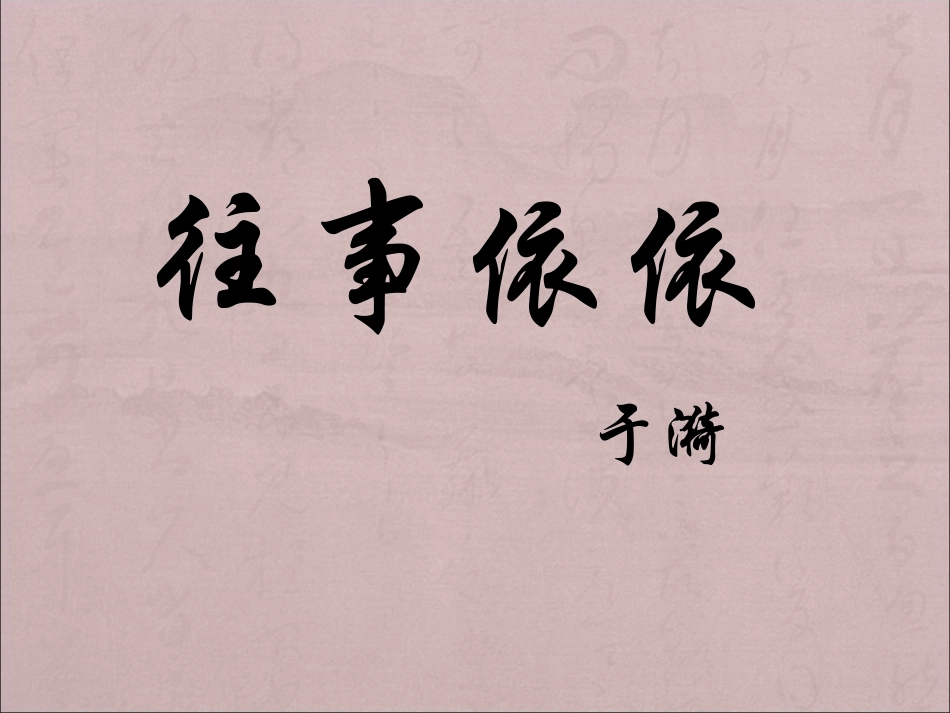 往事依依
于漪